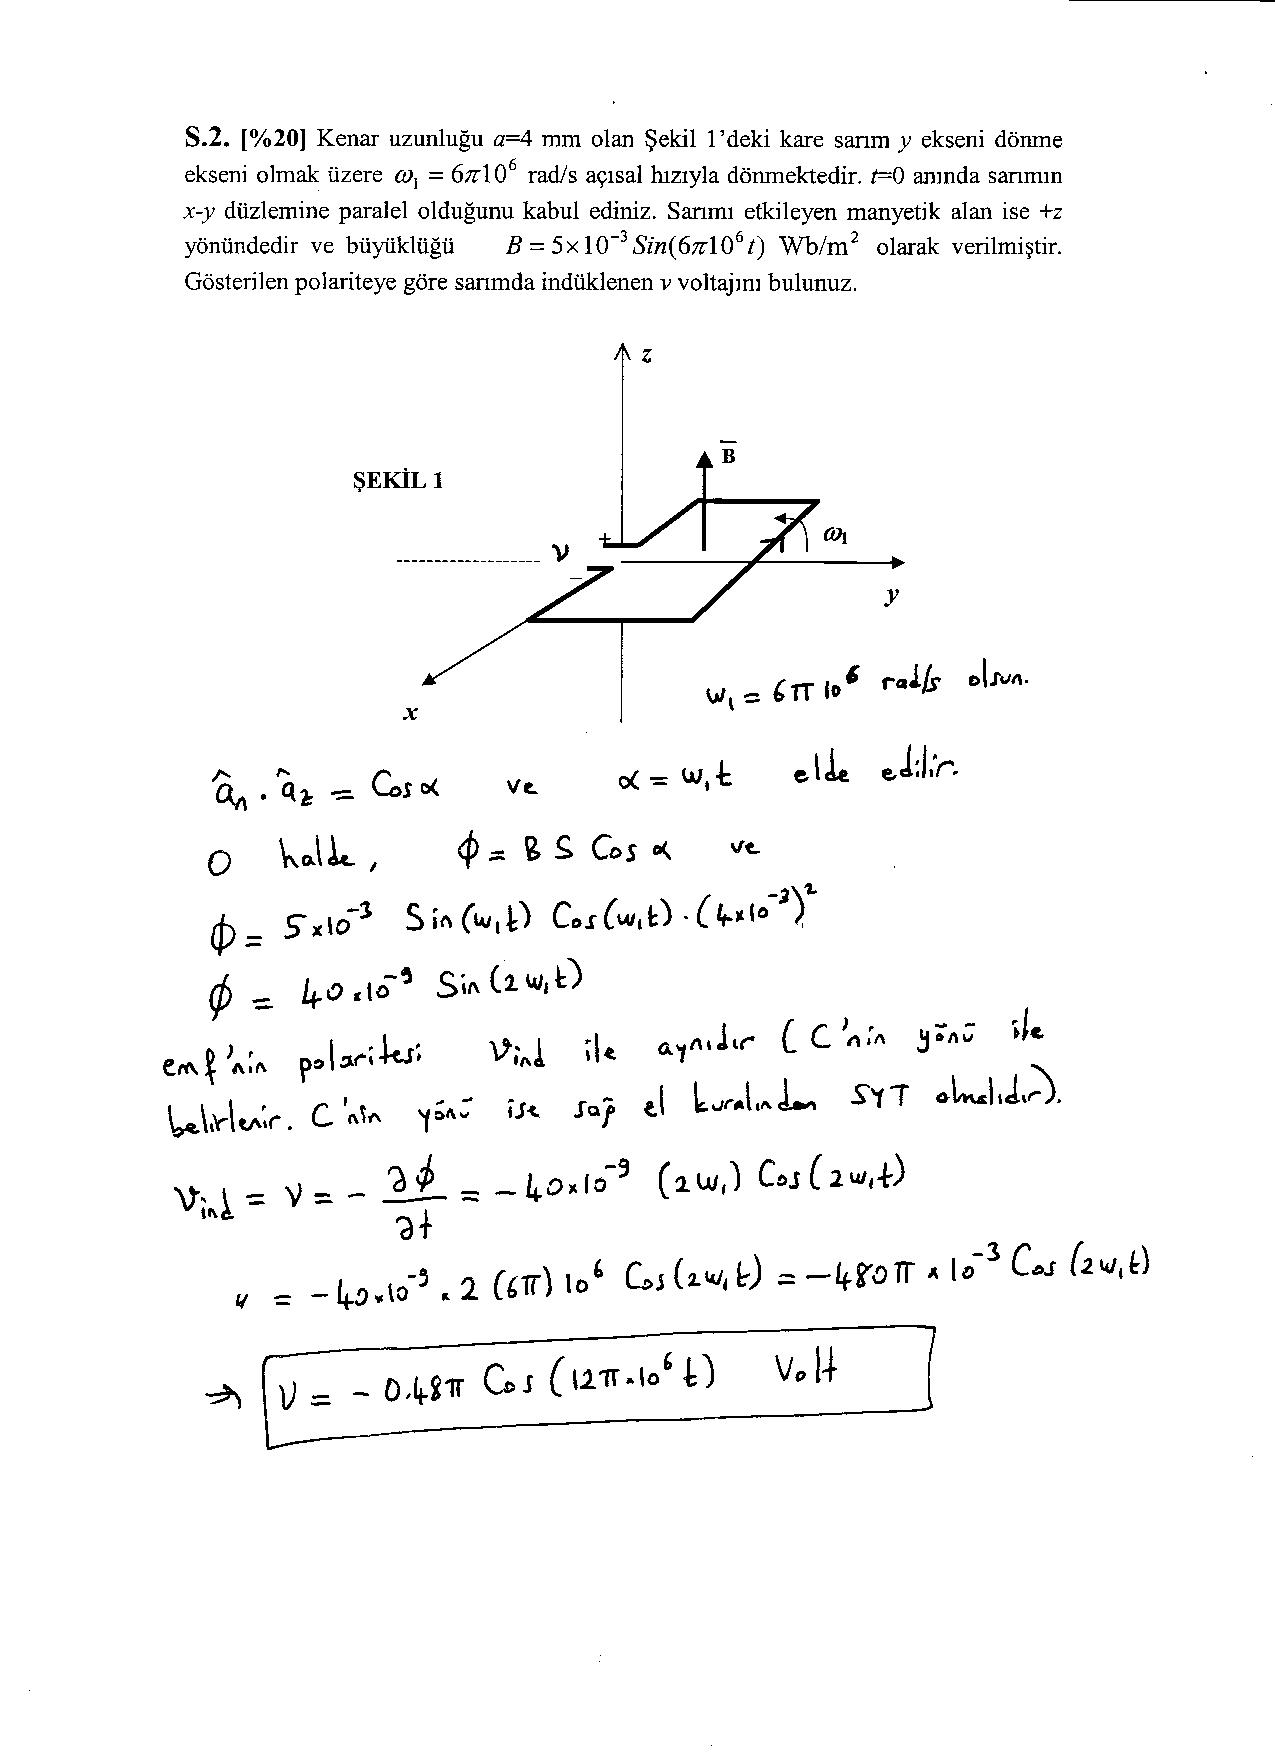 S.2. [%20] Kenar uzunluğu a=4 mm olan Şekil 1'deki kare sarım y ekseni dönme
ekseni olmak üzere ω₁ = 6π10⁶ rad/s açısal hızıyla dönmektedir. t=0 anında sarımın
x-y düzlemine paralel olduğunu kabul ediniz. Sarımı etkileyen manyetik alan ise +z
yönündedir ve büyüklüğü B = 5×10⁻³ Sin(6π10⁶t) Wb/m² olarak verilmiştir.
Gösterilen polariteye göre sarımda indüklenen v voltajını bulunuz.
z
B̅
ŞEKİL 1
+
ω₁
v
−
y
x
w₁ = 6π 10⁶ rad/s olsun.
âₙ . â_z = Cos α ve α = w₁t elde edilir.
O halde, ϕ = B S Cos α ve
ϕ = 5×10⁻³ Sin(w₁t) Cos(w₁t) . (4×10⁻³)²
ϕ = 40×10⁻⁹ Sin(2w₁t)
emf'nin polaritesi Vind ile aynıdır ( C'nin yönü ile
belirlenir. C'nin yönü ise sağ el kuralından SYT olmalıdır).
Vind = V = − ∂ϕ/∂t = −40×10⁻⁹ (2w₁) Cos(2w₁t)
v = −40×10⁻⁹ × 2 (6π) 10⁶ Cos(2w₁t) = −480π × 10⁻³ Cos(2w₁t)
⇒ V = − 0.48π Cos (12π×10⁶ t) Volt